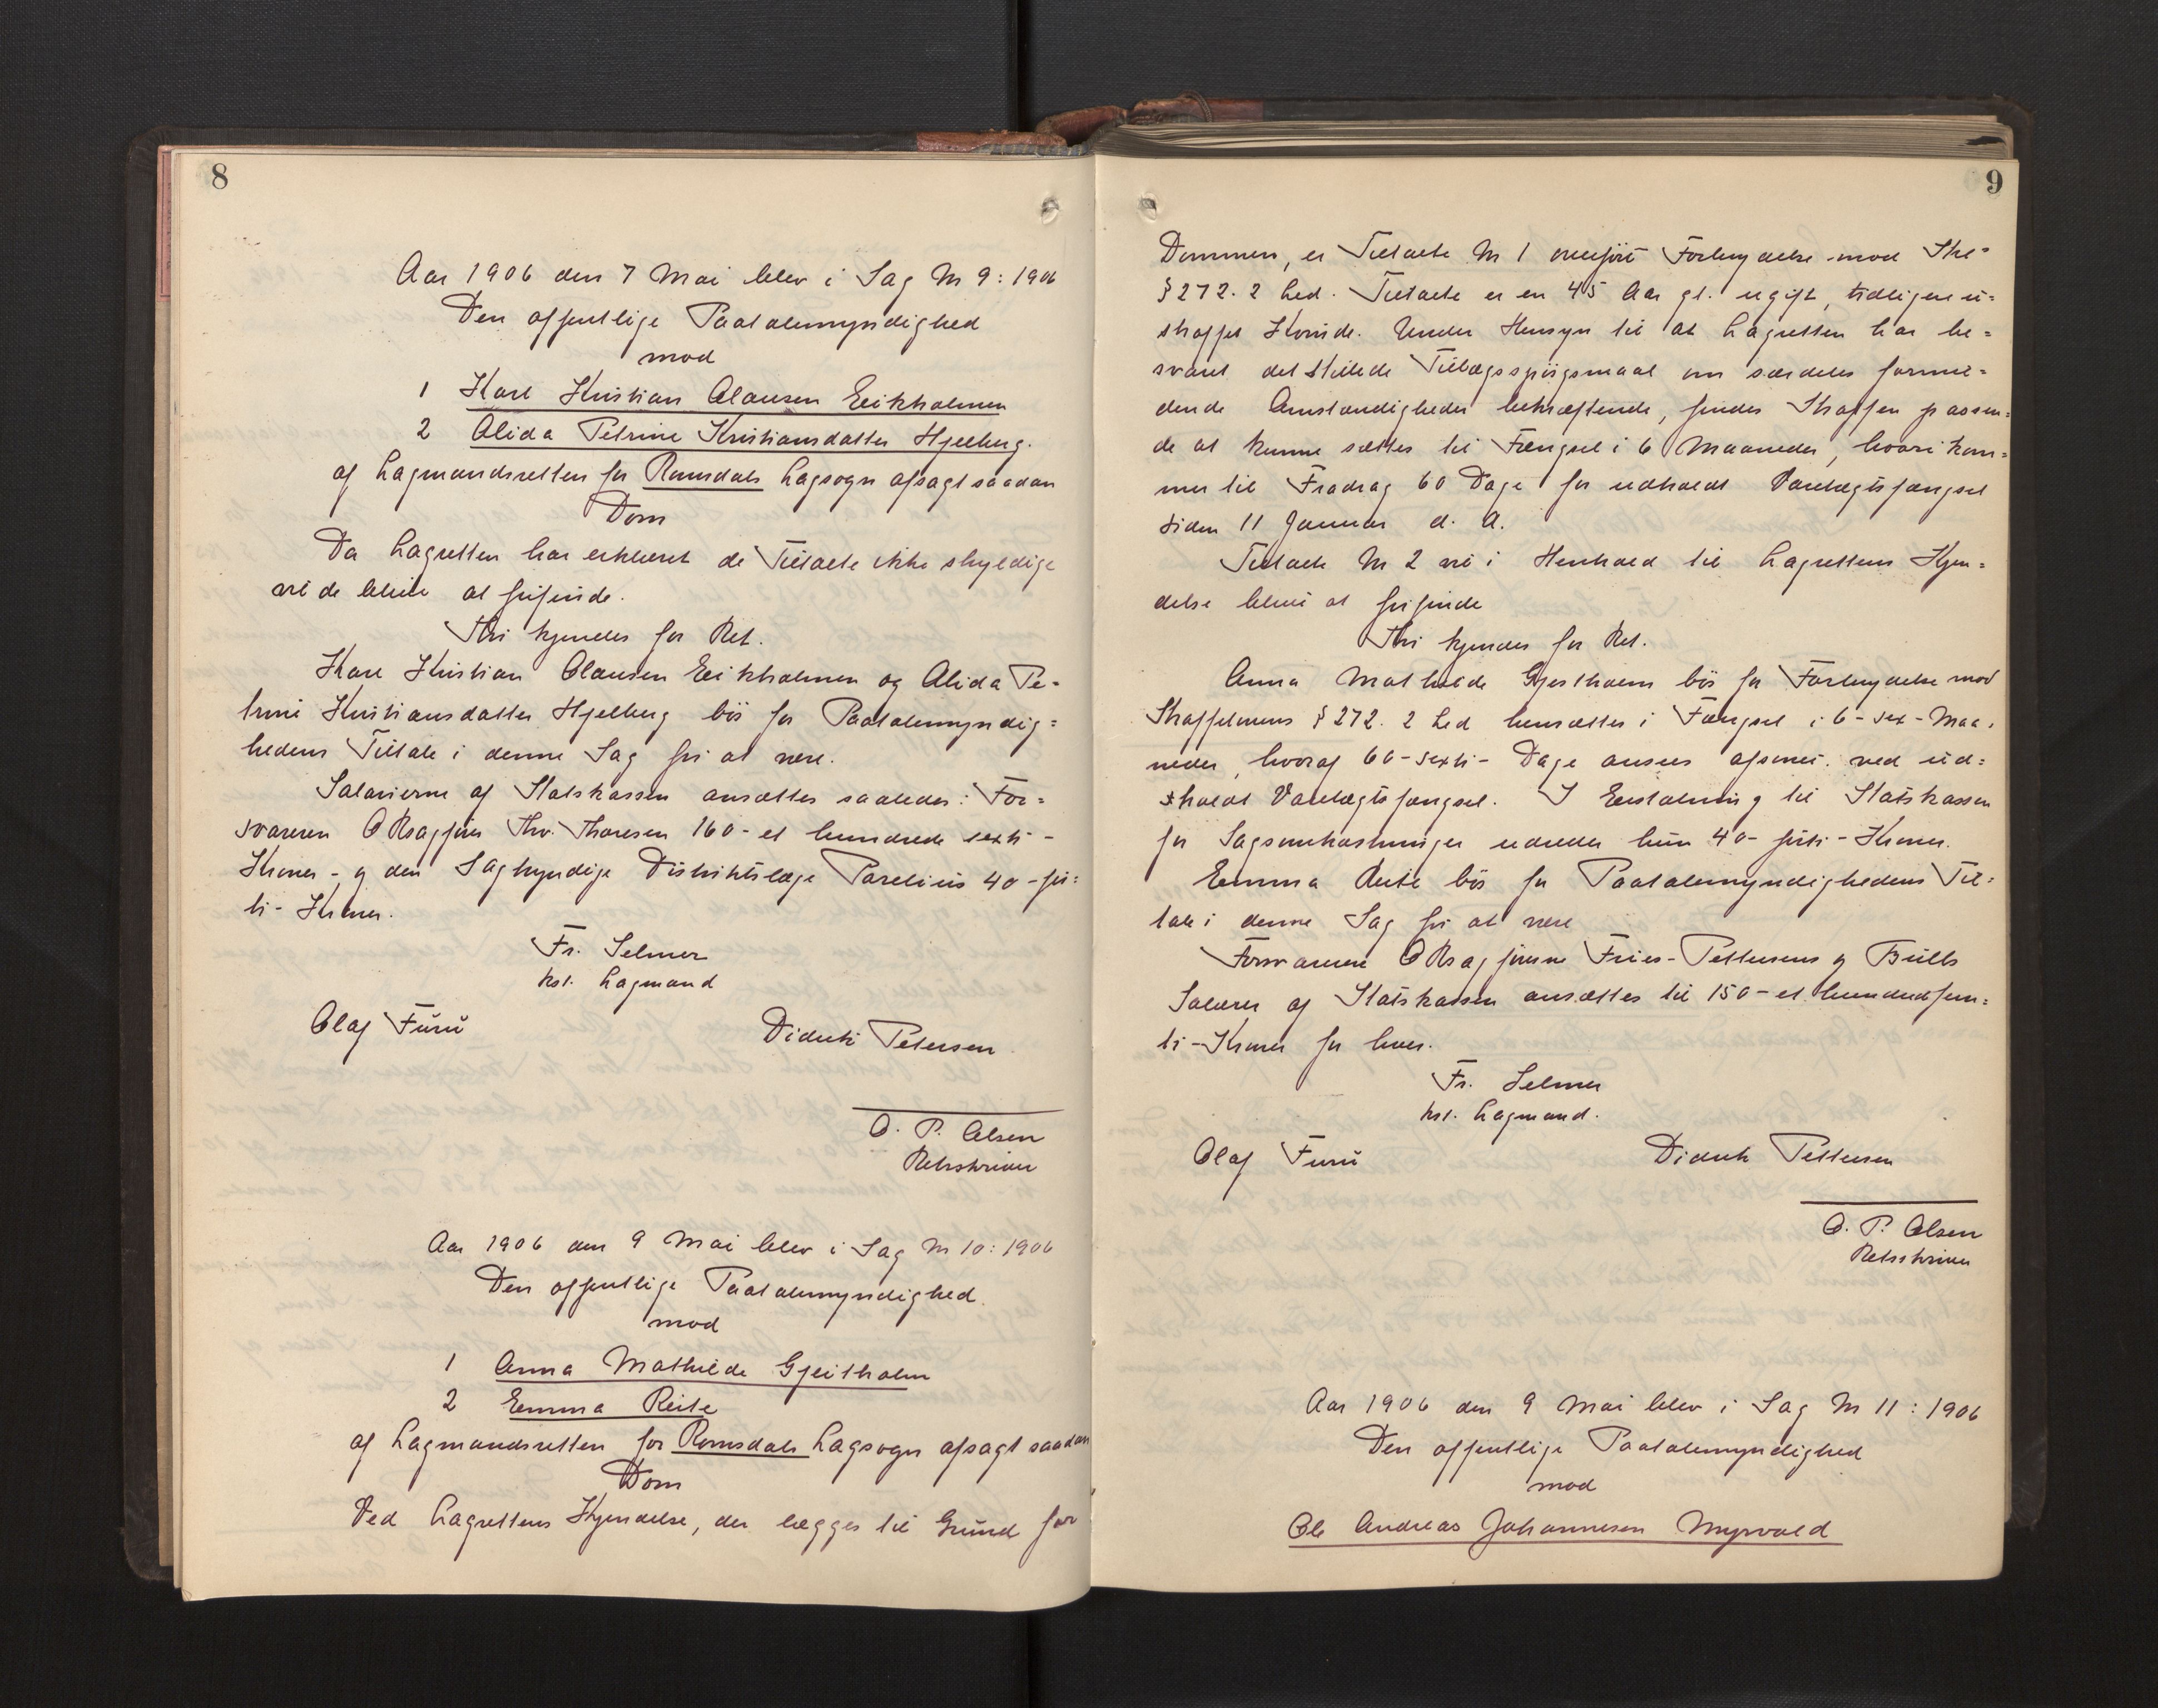 8
Aar 1906 den 7 Mai blev i Sag No 9: 1906
Den offentlige Paatalemyndighed
mod
1 Karl Kristian Olausen Eikholmen
2 Alida Petrine Kristiansdatter Hjelberg.
af Lagmandsretten for Romsdals Lagsogn afsagt saadan
Dom
Da Lagretten har erklæret de Tiltalte ikke skyldige
vil de blive at frifinde.
Thi kjendes for Ret.
Karl Kristian Olausen Eikholmen og Alida Pe-
trine Kristiansdatter Hjelberg bör for Paatalemyndig=
hedens Tiltale i denne Sag fri at være.
Salarierne af Statskassen ansættes saaledes: For=
svareren ORsagförer Thv. Thoresen 160 - et hundrede sexti -
Kroner -, og den Sagkyndige Distriktslæge Parelius 40 - fir=
ti - Kroner.
Fr. Selmer
kst. Lagmand
Olaf Furu
Didrik Petersen
O. P. Olsen
Retsskriver
Aar 1906 den 9 Mai blev i Sag No 10: 1906
Den offentlige Paatalemyndighed
mod
1 Anna Mathilde Gjeitholm
2 Emma Reite
af Lagmandsretten for Romsdals Lagsogn afsagt saadan
Dom
Ved Lagrettens Kjendelse, der lægges til Grund for
9
Dommen, er Tiltalte No 1 overfört Forbrydelse mod Strl=
§ 272. 2 Led. Tiltalte er en 45 Aar gl. ugift, tidligere u=
straffet Kvinde. Under Hensyn til at Lagretten har be=
svaret det stillede Tillægsspörgsmaal om særdeles formil=
dende Omstændigheder bekræftende, findes Straffen passen=
de at kunne sættes til Fængsel i 6 Maaneder, hvori kom=
mer til Fradrag 60 Dage for udholdt Varetægtsfængsel
siden 11 Januar d. A.
Tiltalte No 2 vil i Henhold til Lagrettens Kjen=
delse blive at frifinde
Thi kjendes for Ret.
Anna Mathilde Gjeitholm bör for Forbrydelse mod
Straffelovens § 272. 2 Led hensættes i Fængsel i 6 - sex - Maa=
neder, hvoraf 60 - sexti - Dage ansees afsonet ved ud=
holdt Varetægtsfængsel. I Erstatning til Statskassen
for Sagsomkostninger udreder hun 40 - firti - Kroner.
Emma Reite bör for Paatalemyndighedens Til=
tale i denne Sag fri at være
Forsvarerne ORsagförerne Fries-Pettersens og Bulls
Salærer af Statskassen ansættes til 150 - et hundredfem=
ti - Kroner for hver.
Fr. Selmer
kst. Lagmand.
Olaf Furu
Didrik Pettersen
O. P. Olsen
Retsskriver
Aar 1906 den 9 Mai blev i Sag No 11: 1906
Den offentlige Paatalemyndighed
mod
Ole Andreas Johannesen Myrvold